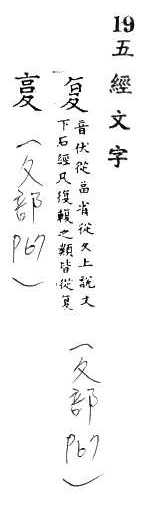 19 五經文字
𡕨 音伏從畗省從夂上說文
下石經凡復輹之類皆從复
(夂部 P67)
复
(夂部 P67)